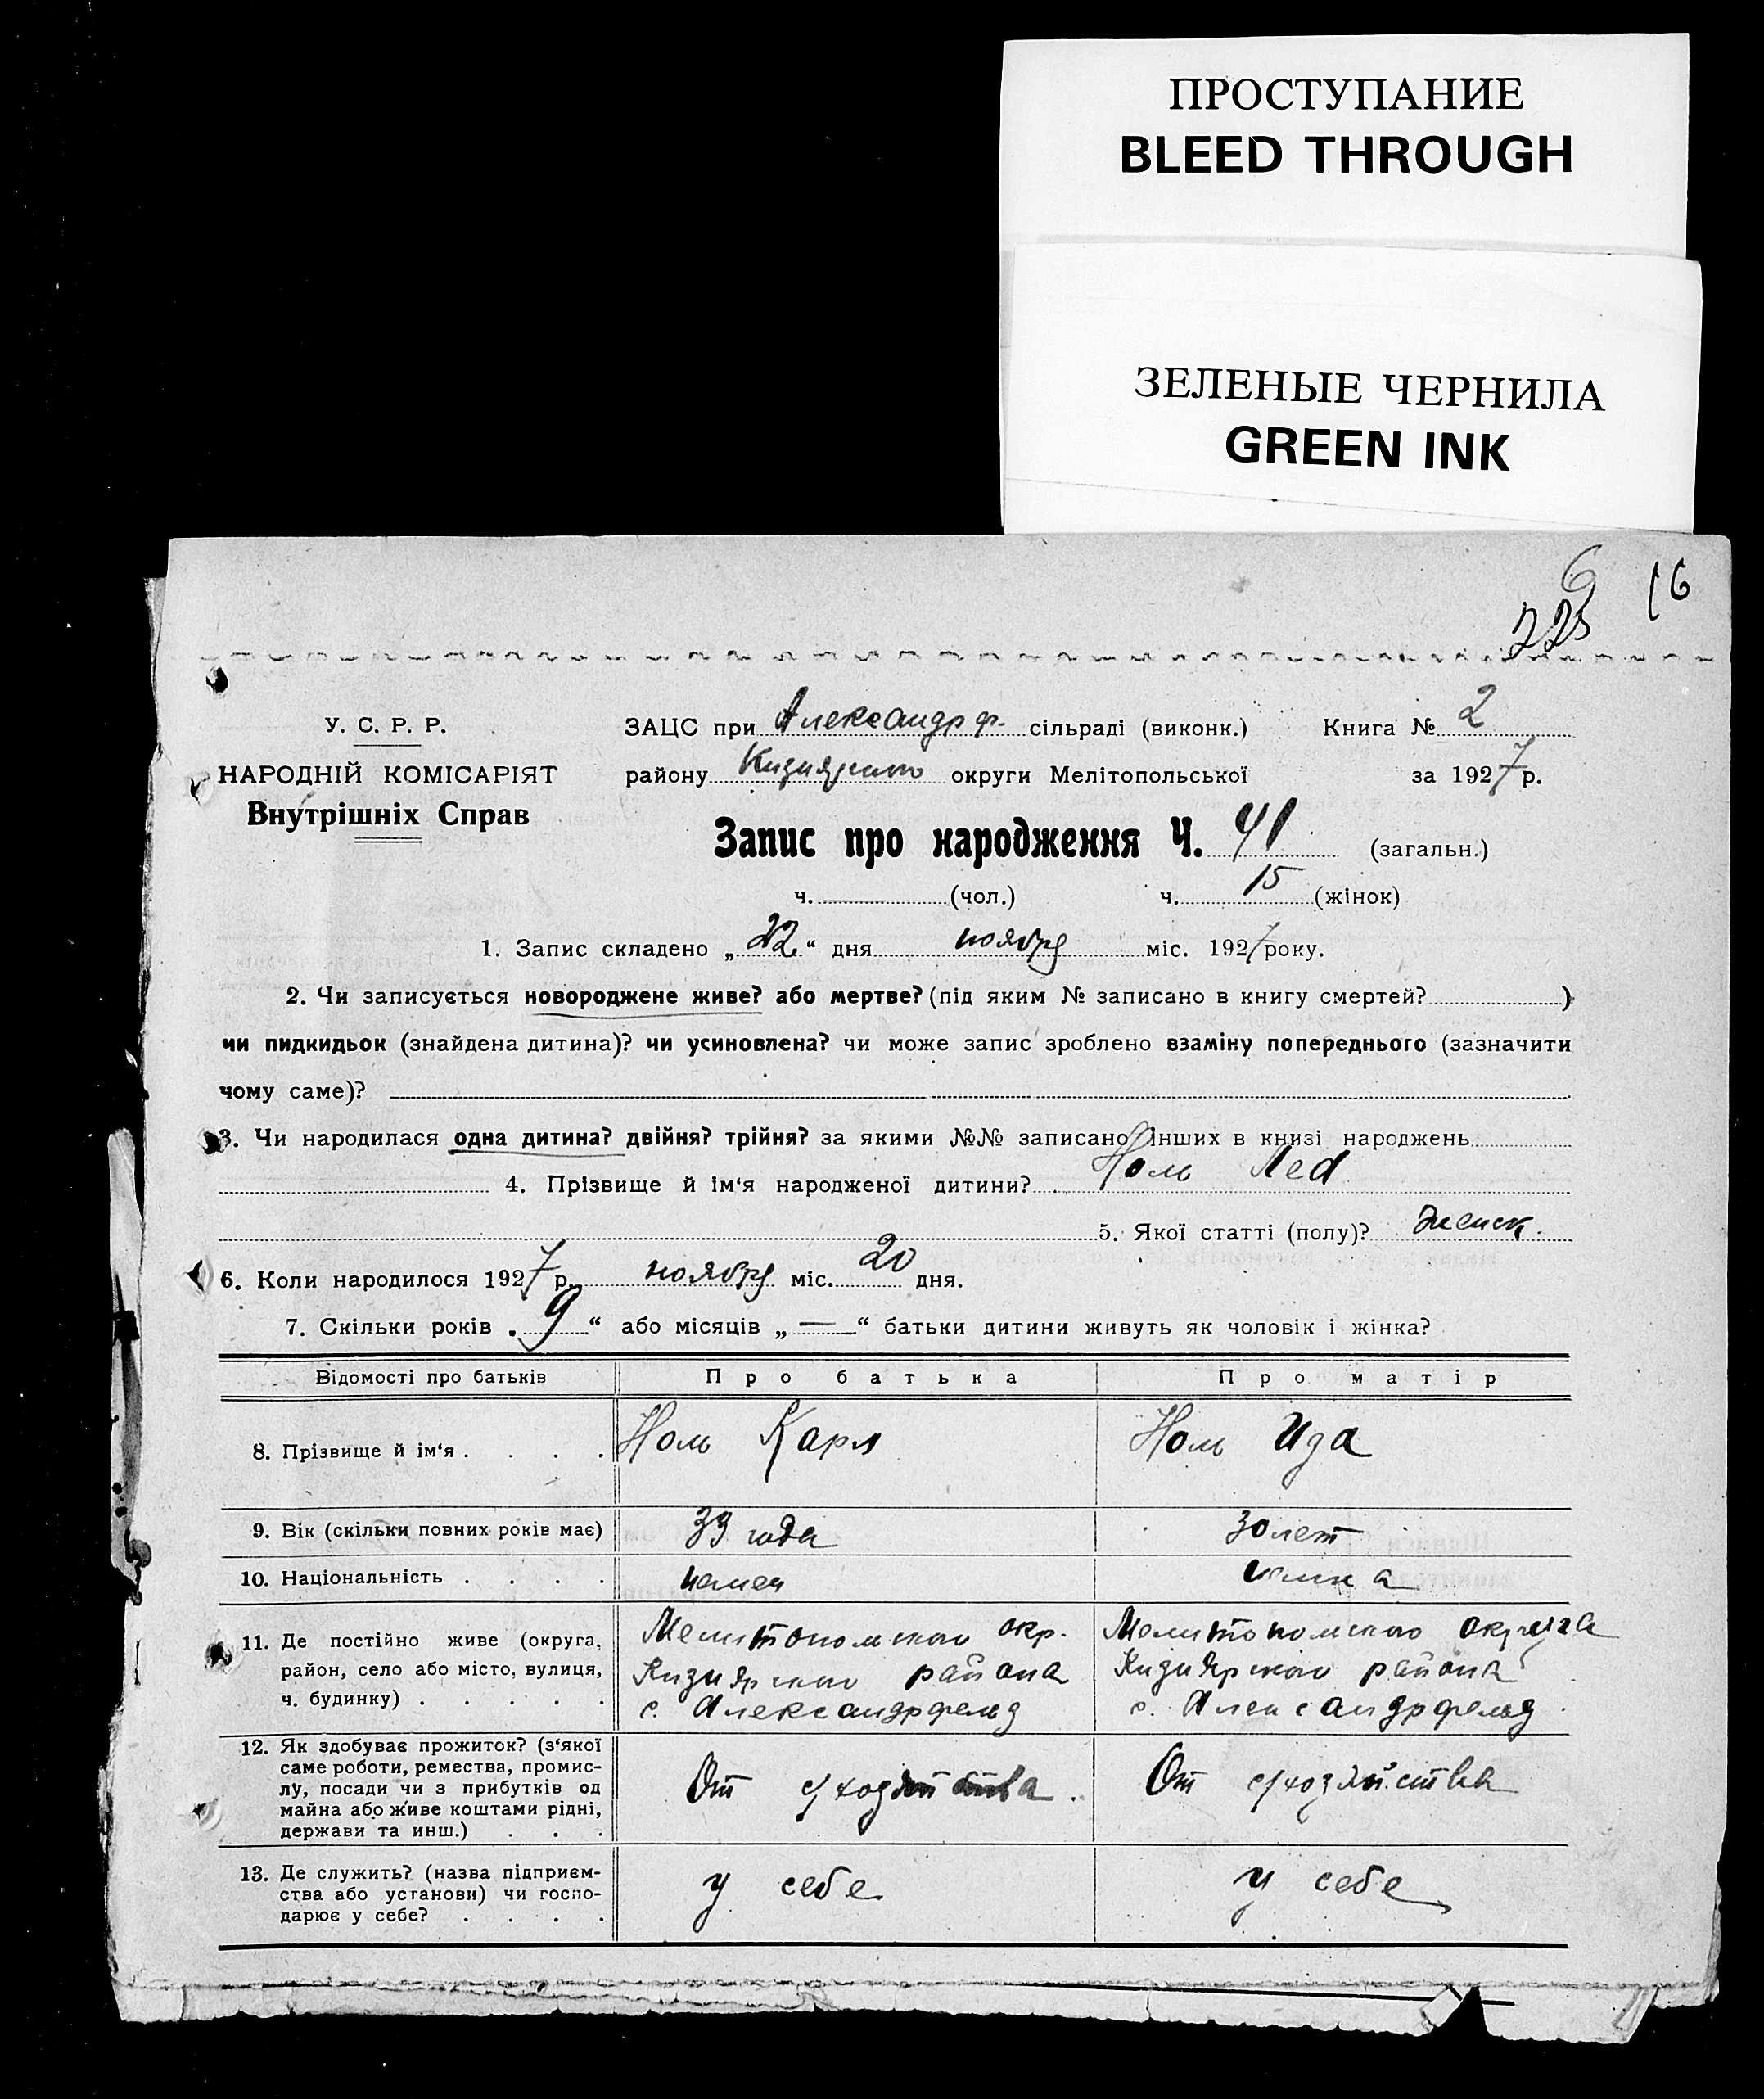 ПРОСТУПАНИЕ
BLEED THROUGH
ЗЕЛЕНЫЕ ЧЕРНИЛА
GREEN INK
6
16
У. С. Р. Р.
НАРОДНІЙ КОМІСАРІЯТ
Внутрішніх Справ
ЗАЦС при Александрф. сільраді (виконк.) Книга № 2
району Кизиярского округи Мелітопольської за 1927 р.
Запис про народження Ч. 41 (загальн.)
ч. — (чол.) ч. 15 (жінок)
1. Запис складено „22“ дня ноября міс. 1927 року.
2. Чи записується новороджене живе? або мертве? (під яким № записано в книгу смертей? )
чи пидкидьок (знайдена дитина)? чи усиновлена? чи може запис зроблено взаміну попереднього (зазначити
чому саме)?
3. Чи народилася одна дитина? двійня? трійня? за якими №№ записано інших в книзі народжень
4. Прізвище й ім‘я народженої дитини? Ноль Леа
5. Якої статті (полу)? женск.
6. Коли народилося 1927 р. ноября міс. 20 дня.
7. Скільки років „9“ або місяців „—“ батьки дитини живуть як чоловік і жінка?
Відомості про батьків Про батька Про матір
8. Прізвище й ім‘я . . . . Ноль Карл Ноль Ида
9. Вік (скільки повних років має) 33 года 30 лет
10. Національність . . . . немец немка
11. Де постійно живе (округа, Мелитопольского окр. Мелитопольского округа
район, село або місто, вулиця, Кизиярского района Кизиярского района
ч. будинку) . . . . . с. Александрфельд с. Александрфельд
12. Як здобуває прожиток? (з‘якої
саме роботи, ремества, промис-
лу, посади чи з прибутків од От с/хозяйства. От с/хозяйства
майна або живе коштами рідні,
держави та инш.) . . .
13. Де служить? (назва підприєм-
ства або установи) чи госпо- у себе у себе
дарює у себе? . . . .